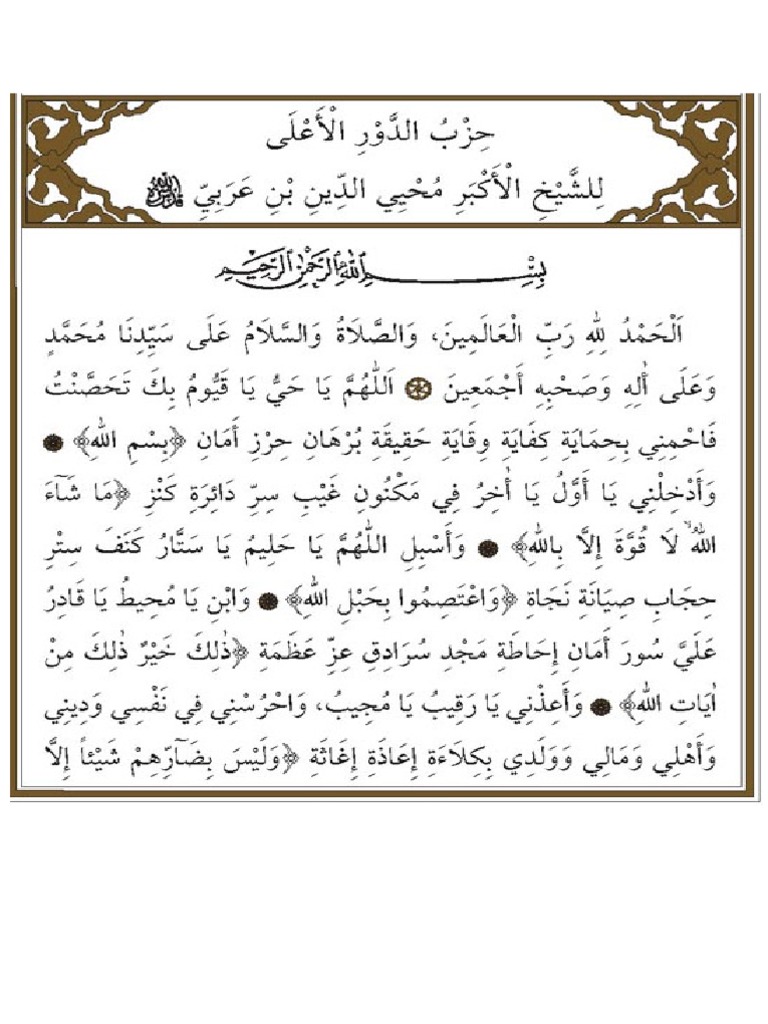 حِزْبُ الدَّوْرِ الْأَعْلَى
لِلشَّيْخِ الْأَكْبَرِ مُحْيِي الدِّينِ بْنِ عَرَبِيّ
بِسْمِ اللهِ الرَّحْمٰنِ الرَّحِيمِ
اَلْحَمْدُ لِلهِ رَبِّ الْعَالَمِينَ، وَالصَّلَاةُ وَالسَّلَامُ عَلَى سَيِّدِنَا مُحَمَّدٍ
وَعَلَى أٰلِهِ وَصَحْبِهِ أَجْمَعِينَ ۞ اَللّٰهُمَّ يَا حَيُّ يَا قَيُّومُ بِكَ تَحَصَّنْتُ
فَاحْمِنِي بِحِمَايَةِ كِفَايَةِ وِقَايَةِ حَقِيقَةِ بُرْهَانِ حِرْزِ أَمَانِ ﴿بِسْمِ اللهِ﴾ ۞
وَأَدْخِلْنِي يَا أَوَّلُ يَا أٰخِرُ فِي مَكْنُونِ غَيْبِ سِرِّ دَائِرَةِ كَنْزِ ﴿مَا شَآءَ
اللهُ ۙ لَا قُوَّةَ إِلَّا بِاللهِ﴾ ۞ وَأَسْبِلِ اللّٰهُمَّ يَا حَلِيمُ يَا سَتَّارُ كَنَفَ سِتْرِ
حِجَابِ صِيَانَةِ نَجَاةِ ﴿وَاعْتَصِمُوا بِحَبْلِ اللهِ﴾ ۞ وَابْنِ يَا مُحِيطُ يَا قَادِرُ
عَلَيَّ سُورَ أَمَانِ إِحَاطَةِ مَجْدِ سُرَادِقِ عِزِّ عَظَمَةِ ﴿ذٰلِكَ خَيْرٌ ذٰلِكَ مِنْ
اٰيَاتِ اللهِ﴾ ۞ وَأَعِذْنِي يَا رَقِيبُ يَا مُجِيبُ، وَاحْرُسْنِي فِي نَفْسِي وَدِينِي
وَأَهْلِي وَمَالِي وَوَلَدِي بِكِلَاءَةِ إِعَاذَةِ إِغَاثَةِ ﴿وَلَيْسَ بِضَآرِّهِمْ شَيْئاً إِلَّا